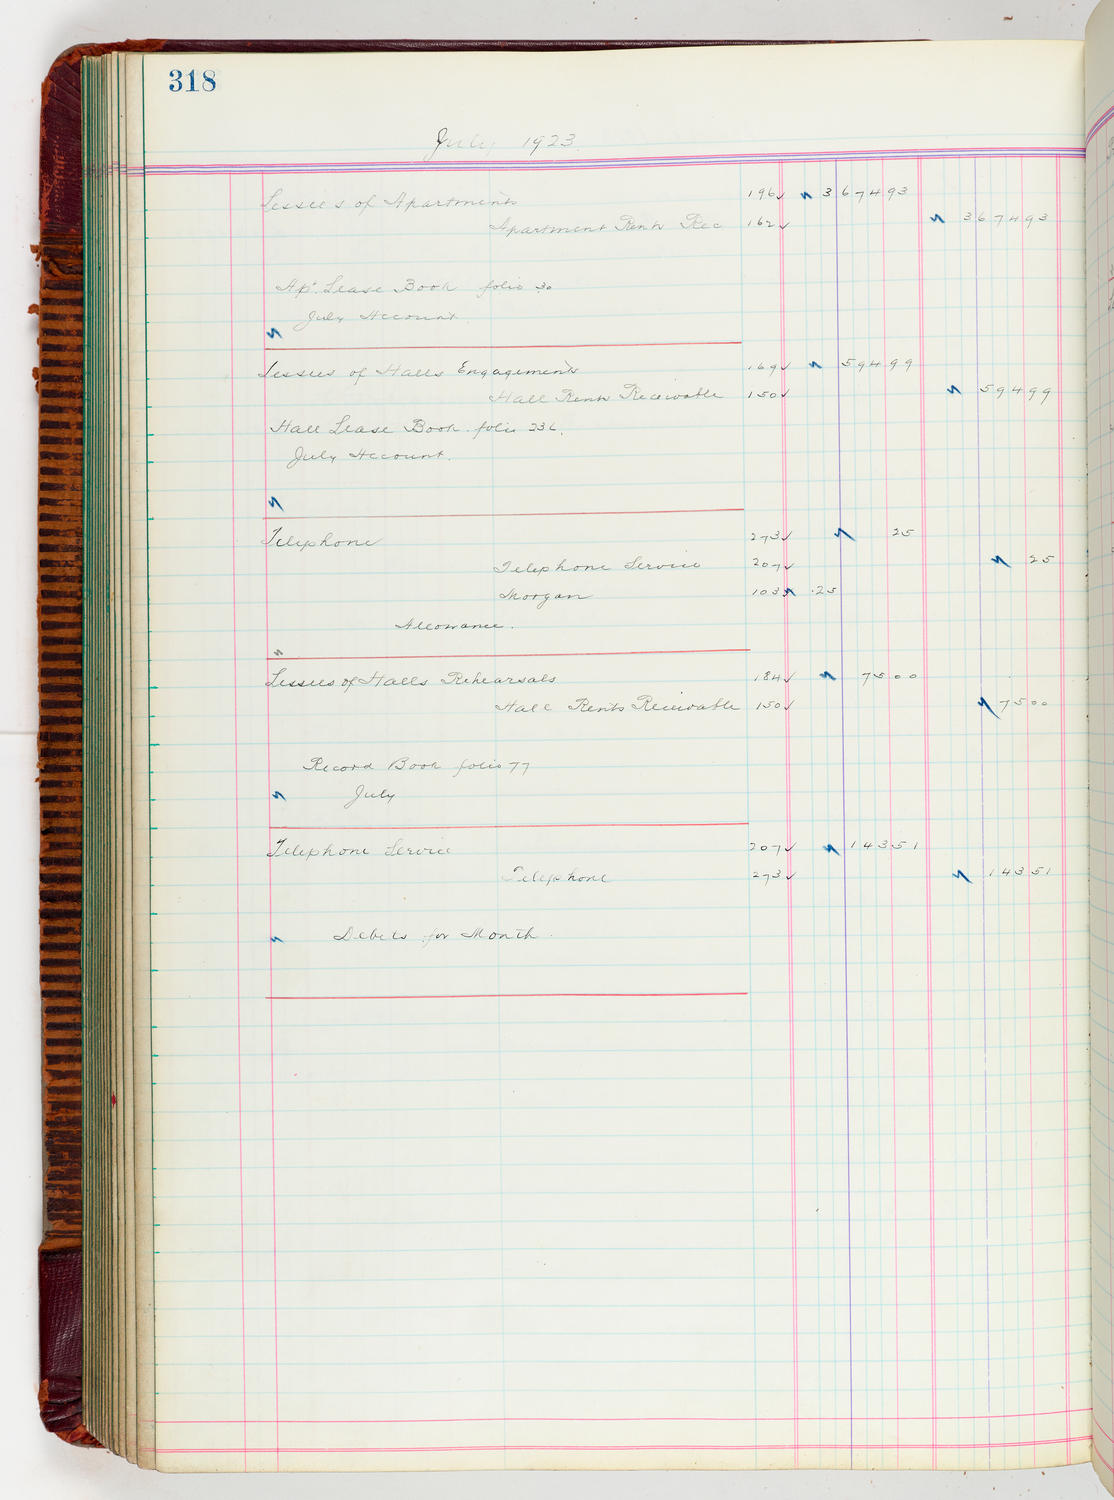 318
July 1923
Lessees of Apartments 196✓ 3 6 7 4 93
Apartment Rents Rec 162✓ 3 6 7 4 93
Apt. Lease Book folio 30
July Account
Lessees of Halls Engagements 169✓ 5 9 4 99
Hall Rents Receivable 150✓ 5 9 4 99
Hall Lease Book folio 236.
July Account.
Telephone 273✓ 25
Telephone Service 207✓ 25
Morgan 103 .25
Allowance.
Lessees of Halls Rehearsals 184✓ 75 00
Hall Rents Receivable 150✓ 75 00
Record Book folio 77
July
Telephone Service 207✓ 143 51
Telephone 273✓ 143 51
Debits for Month.